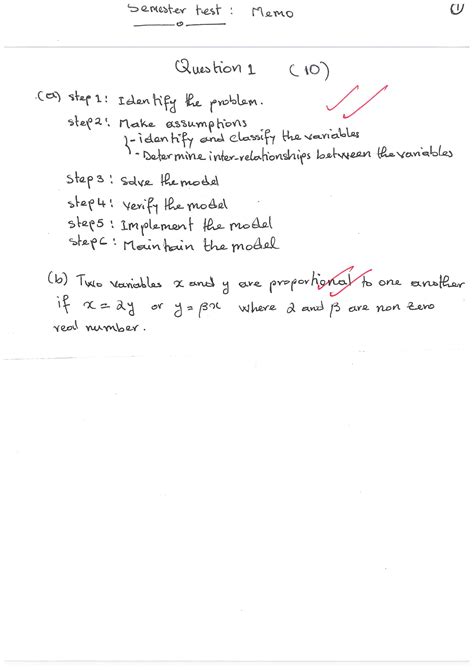 Semester test : Memo
①
Question 1 (10)
(a) step 1: Identify the problem.
step 2: Make assumptions
- identify and classify the variables
- Determine inter-relationships between the variables
Step 3: Solve the model
step 4: Verify the model
step 5: Implement the model
step 6: Maintain the model
(b) Two variables x and y are proportional to one another
if x = 2y or y = βx where 2 and β are non zero
real number.